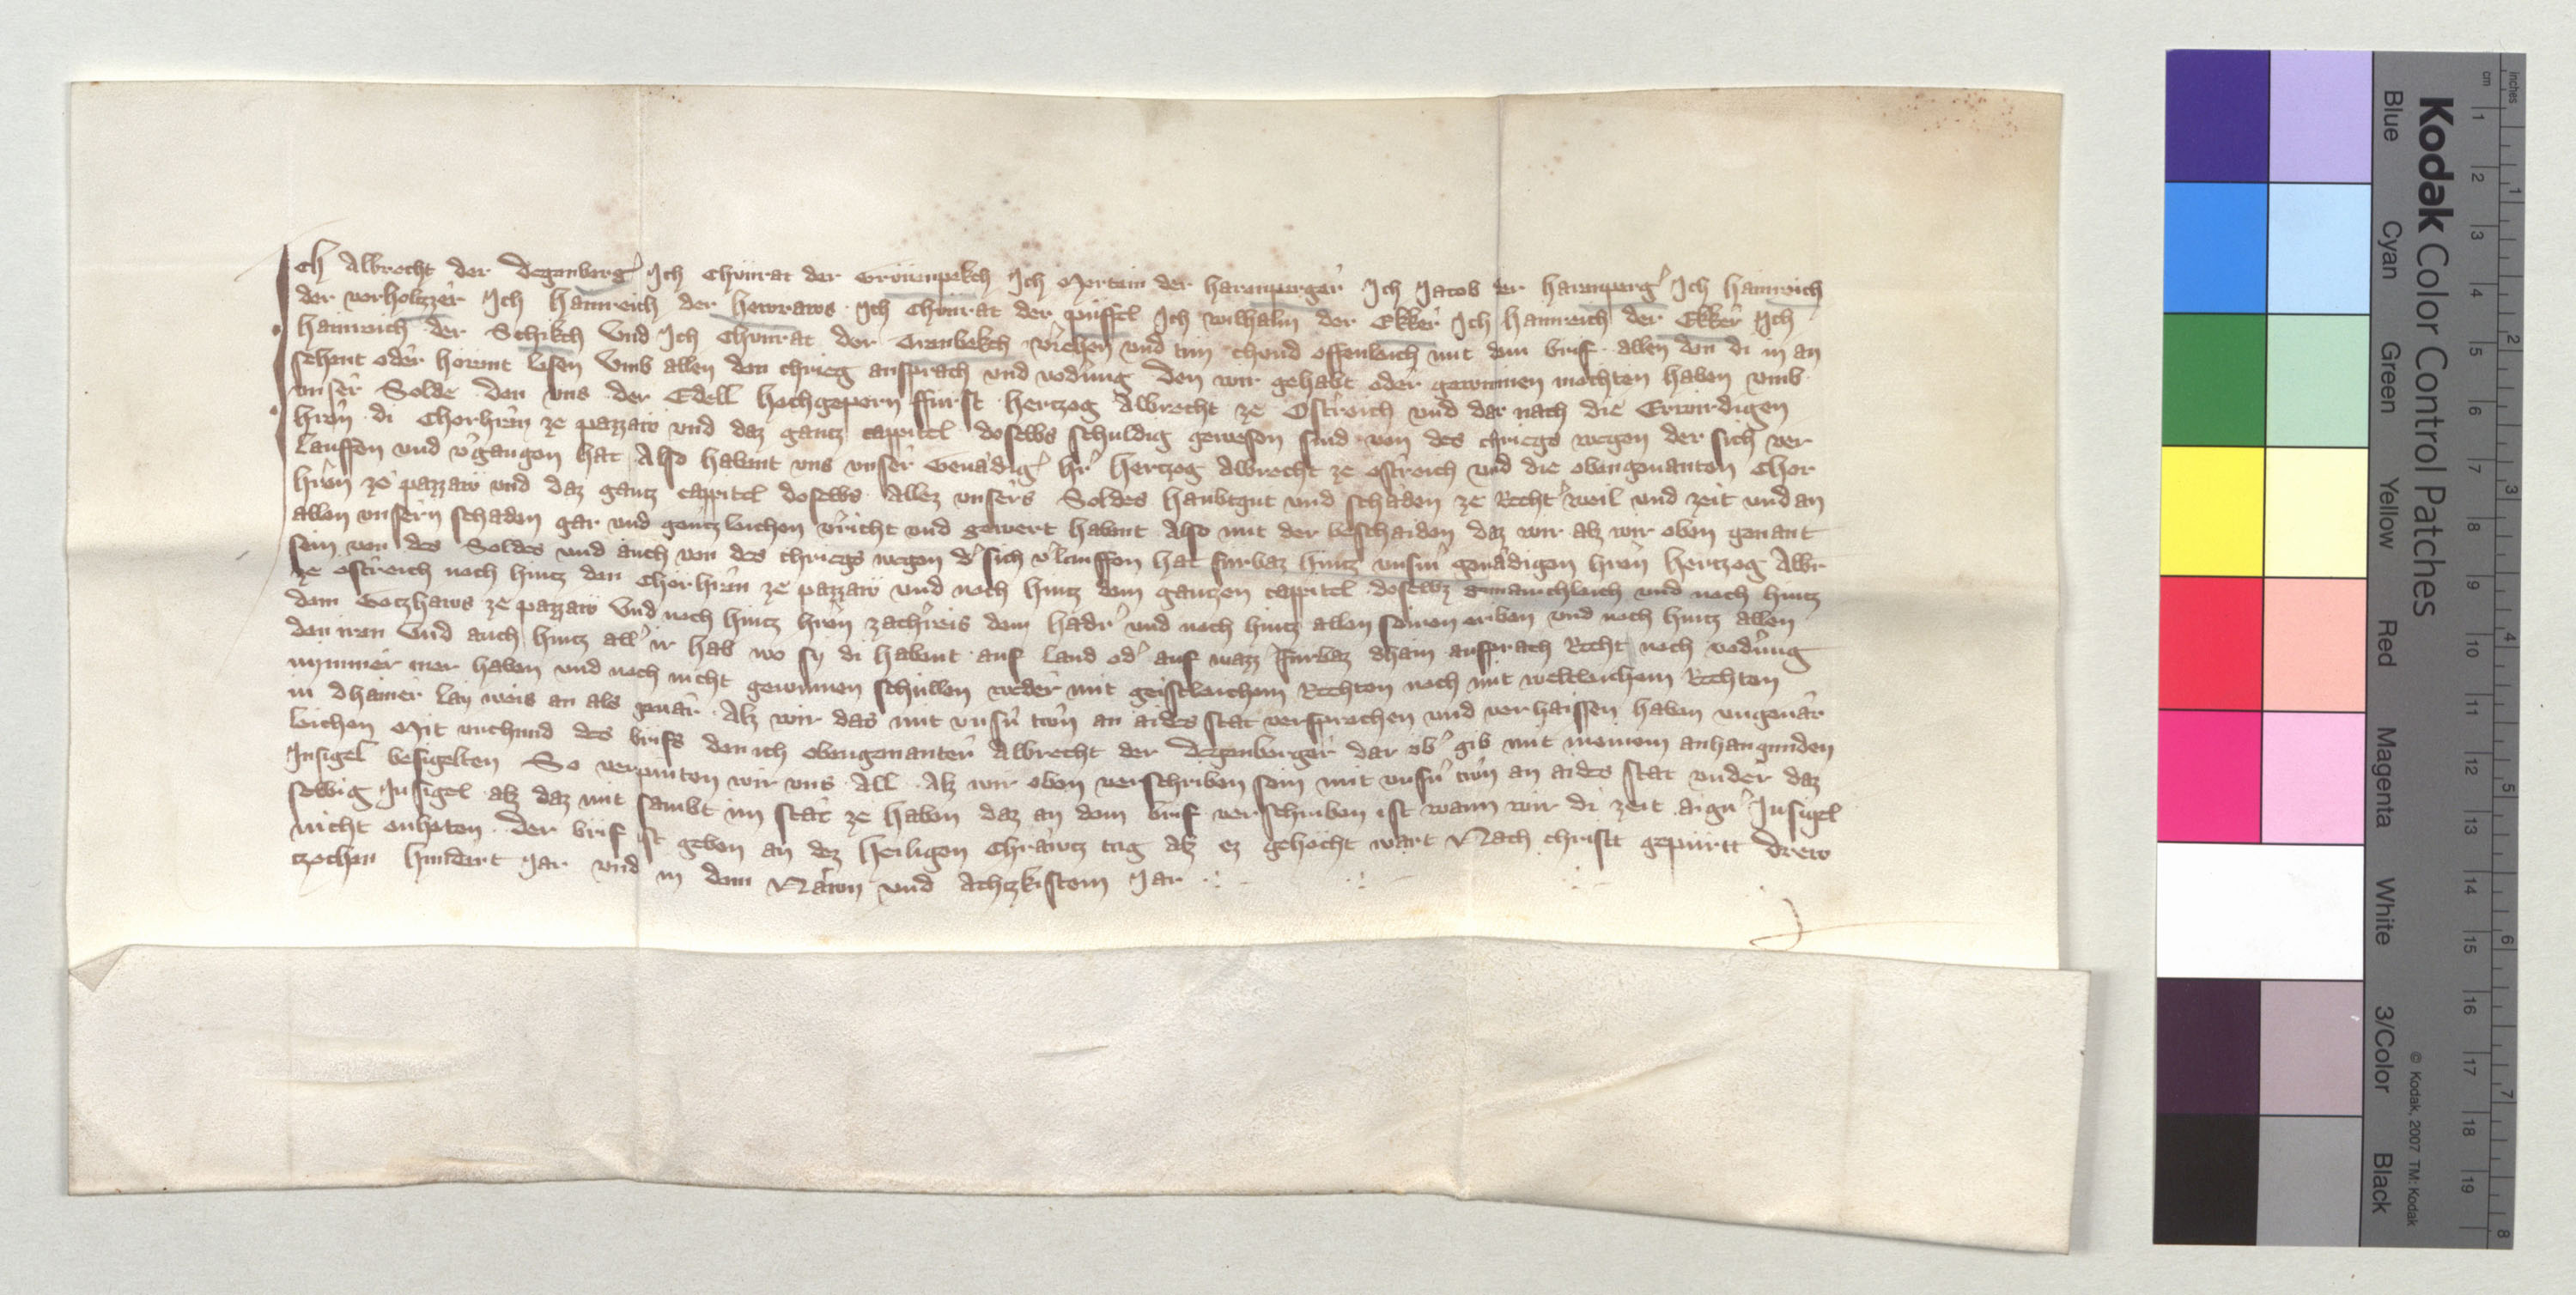 Ich Albrecht der Degenberg' Ich Chunrat der Grüenpekch Ich Mertein der Harenperger Ich Jacob der Harenperg' Ich Hainreich
der vorholtzer Ich Hainreich der Hewraws Ich Chunrat der püffel Ich Wilhalm der Ekker Ich Hainreich der Ekker Ich
Hainreich der Schikch Und Ich Chunrat der v'iehen und tun chund offenleich mit dem brif allen den di in an
sehent oder hörent lesen Umb allen den chrieg ansprach und vodrung den wir gehabt oder gewunnen mochten haben umb
unser Solde den uns der Edell hochgeporn fürst Hertzog Albrecht ze Ostreich und dar nach die Erwirdigen
hren di Chorhren ze pazzaw und daz gantz cappitel doselbs schuldig gewesen sind von des chriegs wegen der sich ver
lauffen und v'gangen hat Also habent uns unser Genadig' hr' Hertzog Albrecht ze ostreich und die obengenanten Chor
hren ze pazzaw und daz gantz cappitel doselbs allez unsers Soldes haubtgut und schaden ze Recht' weil und zeit und an
allen unsern schaden gar und gentzleichen v'richt und gewert habent Also mit der beschaiden daz wir alz wir oben genant
sein von des Soldes und auch von des chriegs wegen d' sich v'lauffen hat furbaz hintz unsn genadigen hren Hertzog Albr
ze ostreich noch hintz den Chorhren ze pazzaw und noch hintz dem gantzen cappitel doselbz gemainchleich und noch hintz
dem Gotzhaws ze pazzaw Und noch hintz hren zachreis dem Hadr' und noch hintz allen seinen erben und noch hintz allen
den iren Und auch hintz all' ir hab wo sy di habent auf land od' auf wazz' Furbaz dhain ansprach Recht noch vodrung
nymmer mer haben und noch nicht gewinnen schullen weder mit geistleichem Rechten noch mit weltleichem Rechten
in dhainer lay weis an als geuar Alz wir das mit unsn trwn an aides stat versprochen und verhaissen haben ungeuar
leichen Mit urchund des brifs den ich obengenanter Albrecht der Degenberger dar ub' gib mit meinem anhangunden
Insigel besigelten So verpinten wir uns All Alz wir oben verschriben sein mit unsn trwn an aides stat under daz
selbig Insigel alz daz mit sambt im stat ze haben daz an dem brif verschriben ist wann wir di zeit aign' Insigel
nicht enheten der brif ist geben an dez Heiligen Chrawtz tag alz ez gehocht wart Nach christi gepürtt drew
tzechen hundert Jar und in dem Näwn und Achtzkistem Jar
Kodak Color Control Patches
Blue Cyan Green Yellow Red Magenta White 3/Color Black
© Kodak, 2007 TM: Kodak
cm 1 2 3 4 5 6 7 8 9 10 11 12 13 14 15 16 17 18 19
inches 1 2 3 4 5 6 7 8